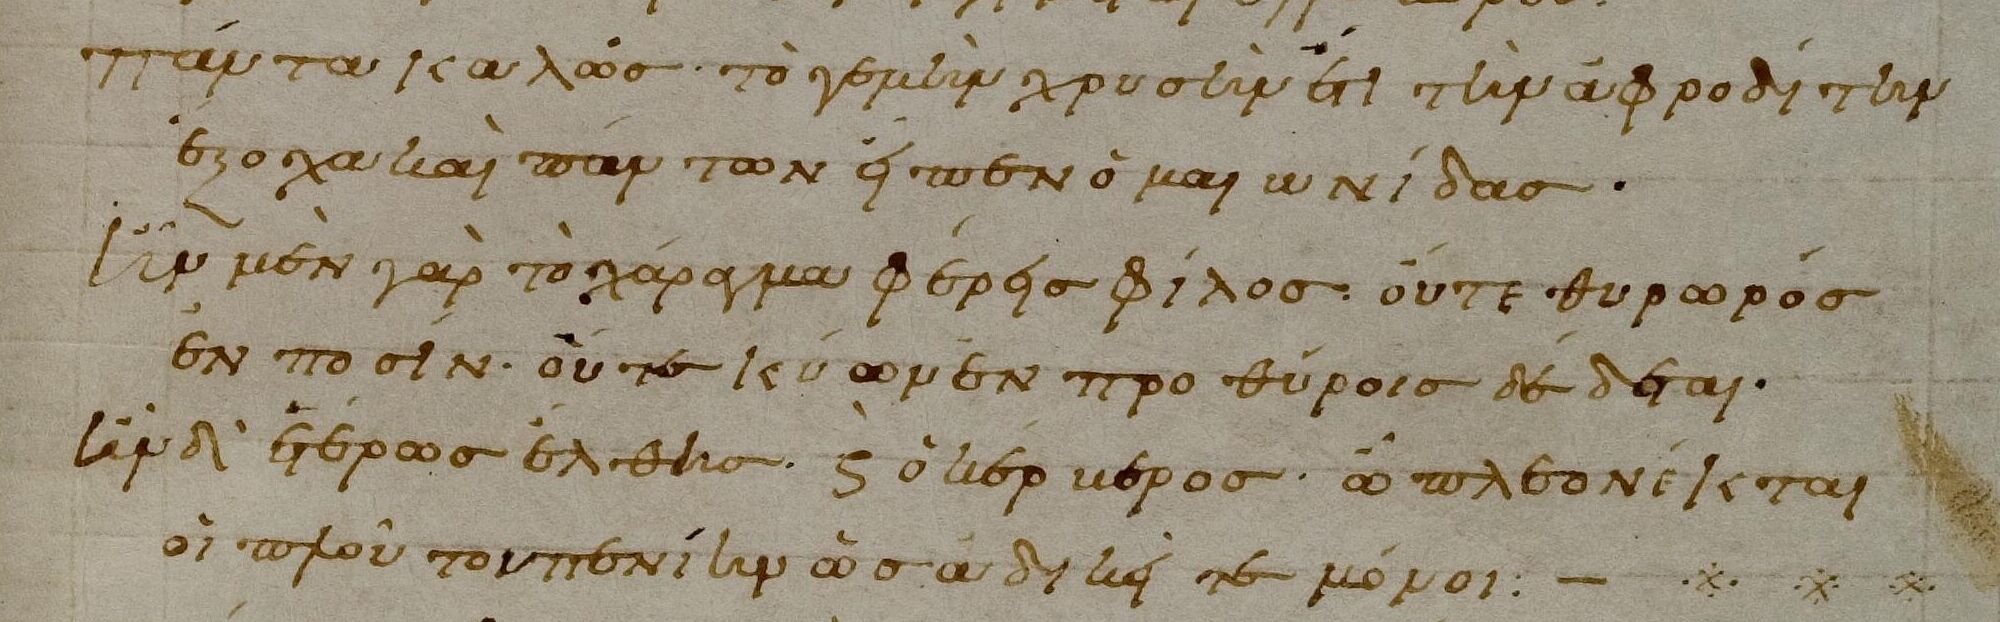 πάντα καλῶσ· τὸ γε μὴν χρυσὴν ὅτι τὴν ἀφροδίτην
ἔξοχα καὶ πάντων εἶπεν ὁ μαιονίδασ·
ἢν μὲν γὰρ τὸ χάραγμα φέρησ φίλοσ· οὔτε θυρωρόσ
ἐν ποσίν· οὔτε κύων ἐν προθύροισ δέδεται·
ἢν δ' ἑτέρωσ ἔλθησ· ϛ ὁ κέρκεροσ· ὦ πλεονέκται
οἱ πλοῦ τον πενίην ὡσ ἀδικεῖτε μόνοι: –